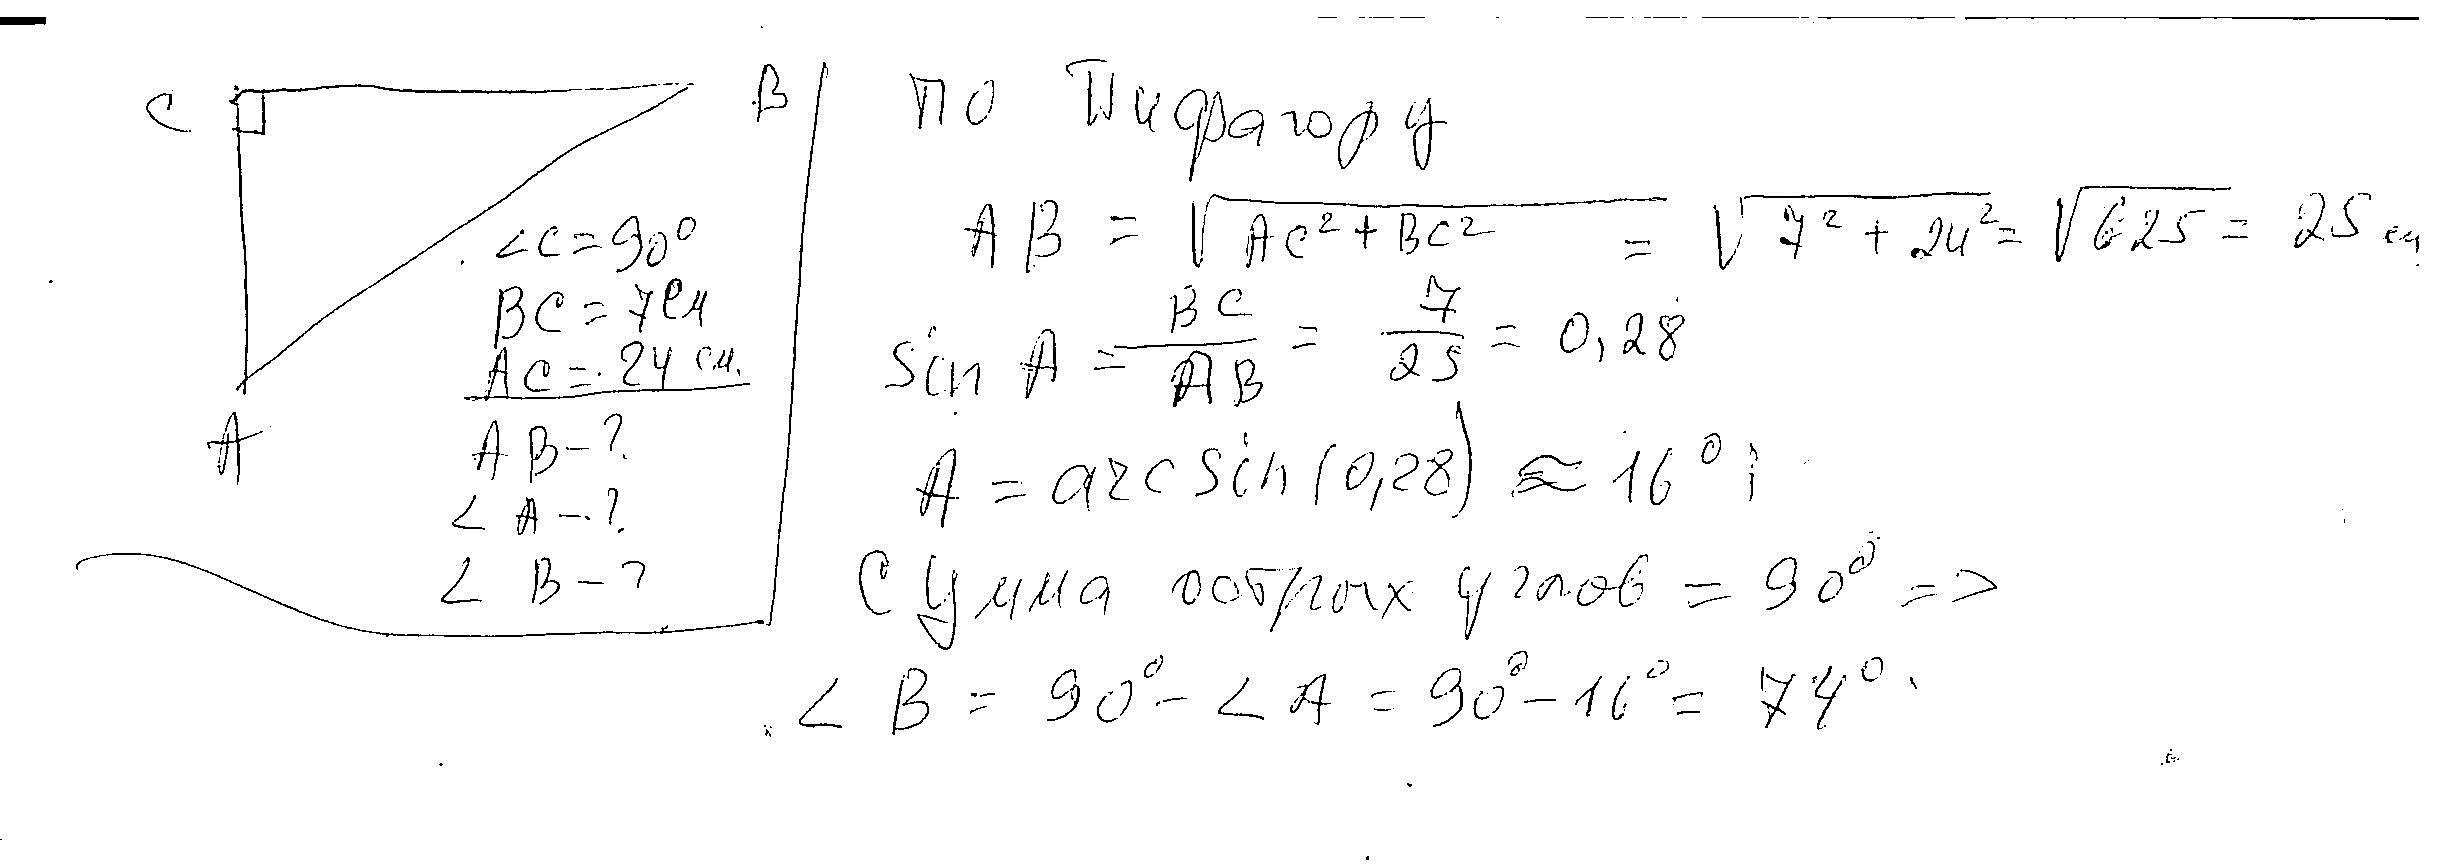 C
B
∠C = 90°
BC = 7 см
AC = 24 см.
A
AB - ?
∠ A - ?
∠ B - ?
по Пифагору
AB = √(AC² + BC²) = √(7² + 24²) = √625 = 25 см
sin A = BC/AB = 7/25 = 0,28
A = arcsin(0,28) ≈ 16°;
Сумма острых углов = 90° =>
∠ B = 90° - ∠ A = 90° - 16° = 74°.